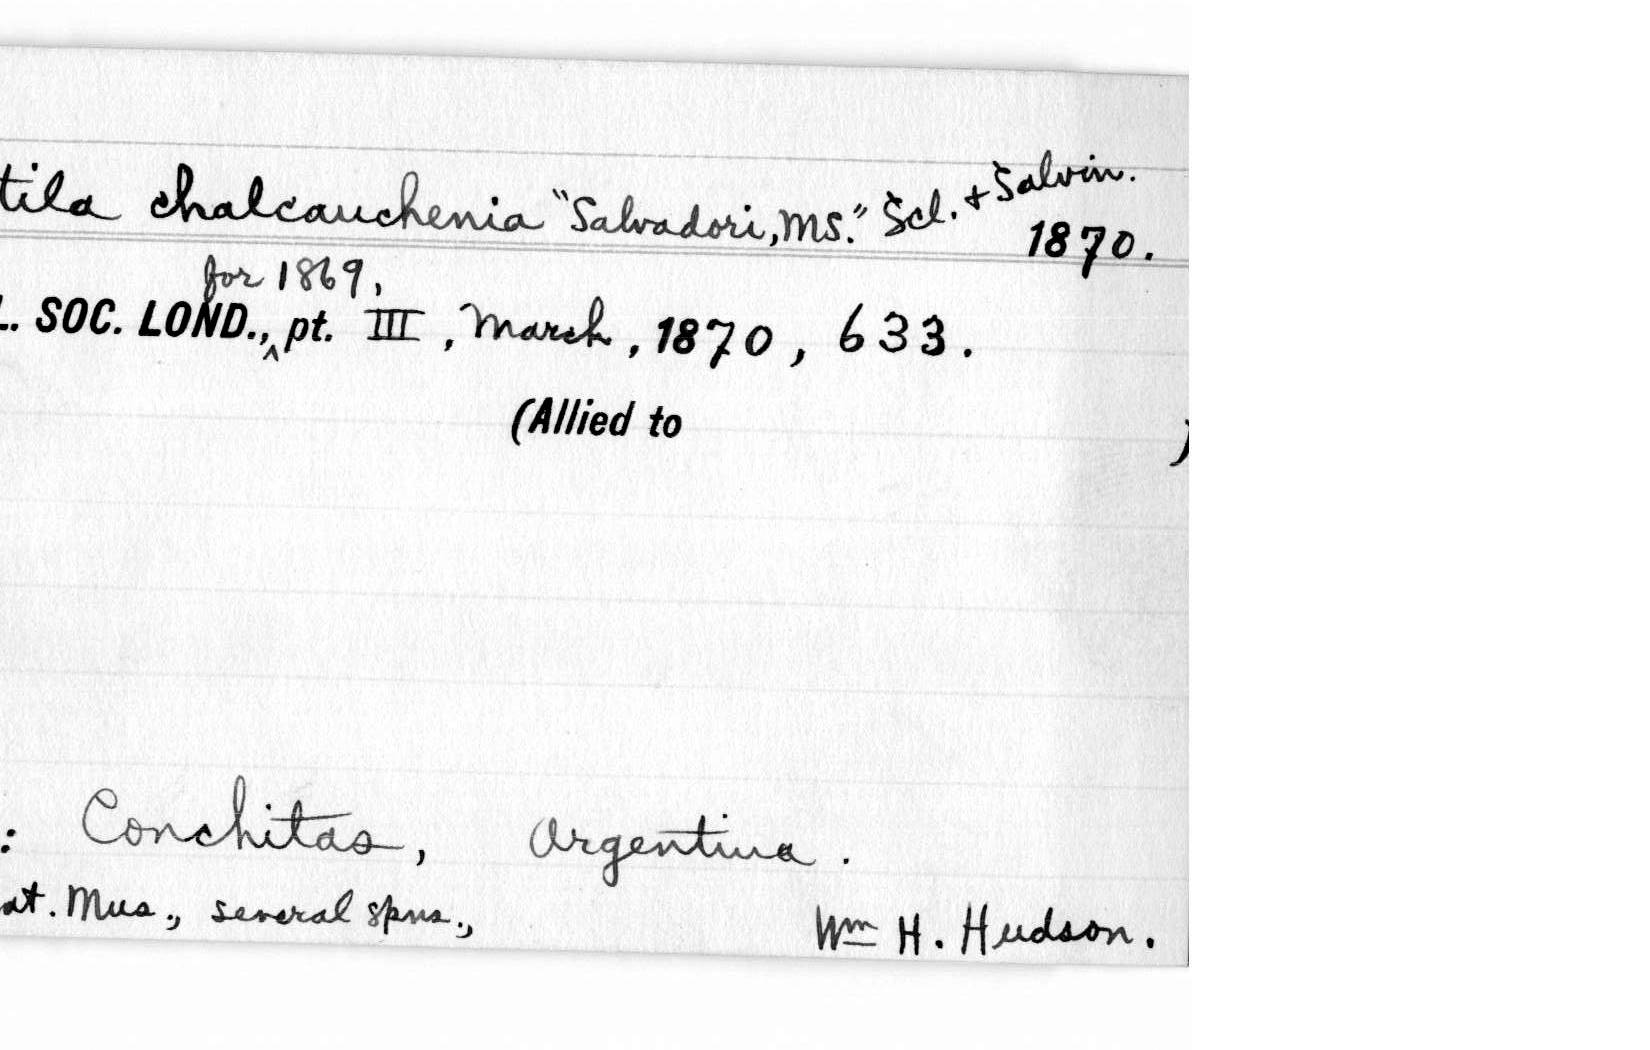 tila chalcauchenia "Salvadori, MS." Scl. + Salvin.
1870.
for 1869,
L. SOC. LOND., ^ pt. III, March, 1870, 633.
(Allied to )
: Conchitas, Argentina.
at. Mus., several spns., Wm H. Hudson.